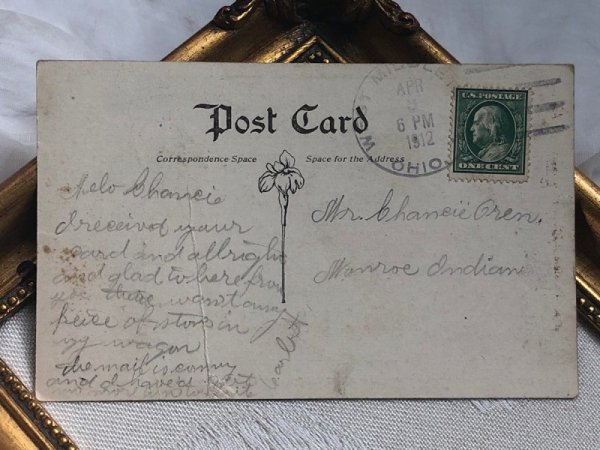 Post Card
Correspondence Space
Space for the Address
WEST MIDDLE
APR
6 PM
1912
OHIO
U.S. POSTAGE
ONE CENT
Helo Chancie
I received your
card and allright
and glad to here from
you there wasn't any
peice of stove in
my wagon
the mail is coming
and I have
Mr. Chancie Oren.
Monroe Indian